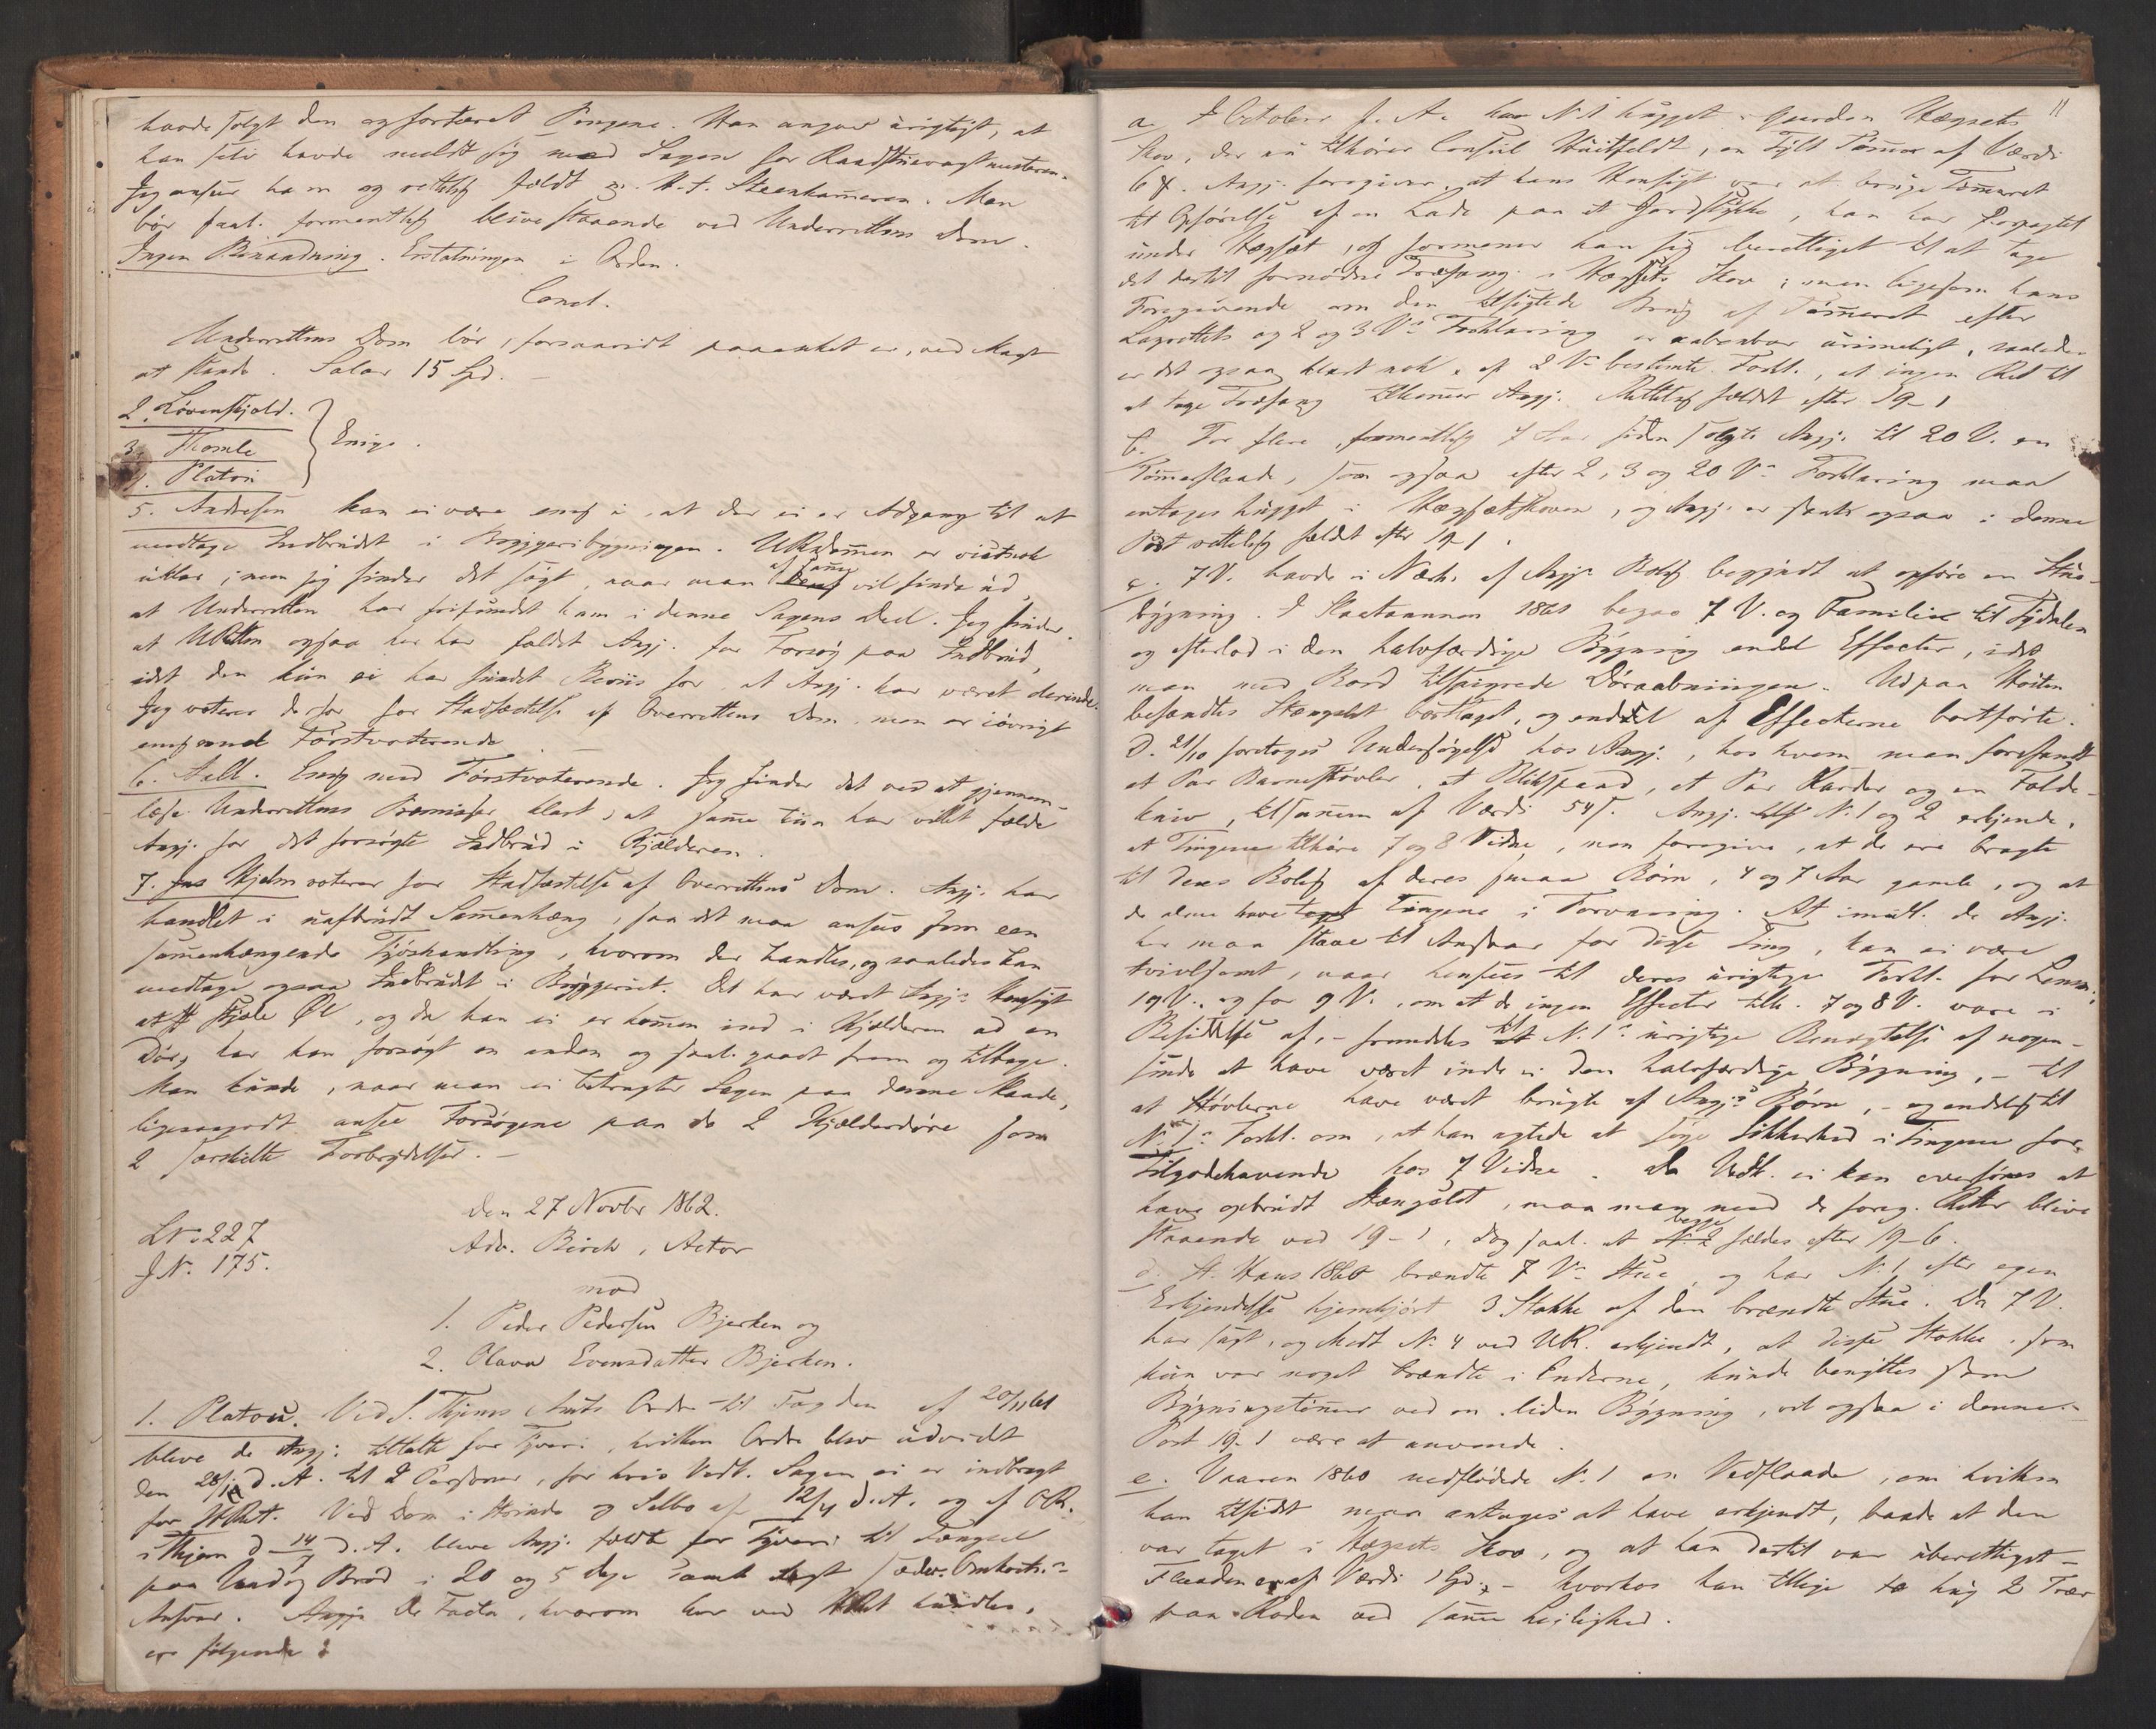 havde solgt den og fortæret Pengene. Han angav urigtigt, at
han selv havde meldt sig med Sagen for Raadstuevagtmesteren.
Jeg anseer ham og rettelig fældt gr. Steenkameren. Men
bør saal. formentlig blive staaende ved Underrettens Dom.
Ingen Benaadning. Erstatningen i Orden.
Concl.
Underrettens Dom bør, forsaavidt paaanket er, ved Magt
at stande. Salær 15 Spd.
2. Løvenskjold.
3. Thomle
4. Platou
Enige.
5. Andresen kan ei være enig i, at der ei er Adgang til at
medtage Indbrudet i Bryggeribygningen. URdommen er vistnok
uklar; men jeg finder det søgt, naar man af samme vil finde ud,
at Underretten har frifundet ham i denne Sagens Deel. Jeg finder,
at URetten ogsaa her har fældet Angj. for Forsøg paa Indbrud,
idet den kun ei har fundet Beviis for, at Angj. har været derinde.
Jeg voterer derfor for Stadfæstelse af Overrettens Dom, men er iøvrigt
enig med Førstvoterende
6. Aall. Enig med Førstvoterende. Jeg finder det ved at gjennem-
læse Underrettens Præmisser klart, at samme kun har villet fælde
Angj. for det forsøgte Indbrud i Kjælderen.
7. Jus Hjelm voterer for Stadfæstelse af Overrettens Dom. Angj. har
handlet i uafbrudt Sammenhæng, saa det maa ansees som een
sammenhængende Tyvshandling, hvorom der handles, og saaledes kan
medtage ogsaa Indbrudt i Bryggeriet. Det har været Angj.s Hensigt
at stjæle Øl, og da han ei er kommen ind i Kjælderen ad en
Dør, har han forsøgt en anden og saal. gaaet frem og tilbage.
Man kunde, naar man ei betragter Sagen paa denne Maade,
ligesaagodt ansee Forsøgene paa de 2 Kjælderdøre som
2 særskilte Forbrydelser.
Den 27 Novbr 1862.
LN: 227
JN. 175.
Adv. Birch, Actor
mod
1. Peder Pedersen Bjerken og
2. Olava Evensdatter Bjerken.
1. Platou. Ved S. Thjems Amts Ordre til Fogden af 20/11 61
bleve de Angj. tiltalte for Tyveri, hvilken Ordre blev udvidet
den 28/1 d.A. til 2 Personer, for hvis Vedk. Sagen ei er indbragt
for HRet. Ved Dom i Strinde og Selbo af 12/4 d.A. og af OR.
i Thjem d 14/7 d.A. bleve Angj. fældte for Tyveri til Fængsel
paa Vand og Brød i 20 og 5 Dage samt sædv. Omkostn.s
Ansvar. De Facta, hvorom her ved HRet handles,
ere følgende:
11
a. I October f. A. har N. 1 hugget i Gaarden Hegsets
Skov, der nu tilhører Consul Huitfeldt, en Tylt Tømmer af Værdi
6 . Angj. foregiver, at hans Hensigt var at bruge Tømmeret
til Opførelse af en Lade paa et Jordstykke, han har forpagtet
under Hegset, og formener han sig berettiget til at tage
det dertil fornødne Træfang i Hegsets Skov; men ligesom hans
Foregivende om den tilsigtede Brug af Tømmeret efter
Lagrettets og 2 og 3 V.s Forklaring er aabenbar urimeligt, saaledes
er det ogsaa klart nok af 2 V.s bestemte Forkl., at ingen Ret til
at tage Træfang tilkommer Angj. Rettelig fældet efter 19-1
b. For flere, formentlig 7 Aar siden solgte Angj. til 20 V. en
Tømmerflaade, som ogsaa efter 2, 3 og 20 V.s Forklaring maa
antages hugget i Hegsetskoven, og Angj. er saal. ogsaa i denne
Post rettelig fældet efter 19-1.
c. 7 V. havde i Nærh. af Angj.s Bolig begyndt at opføre en Stue-
bygning. I Slaataannen 1861 begav 7 V. og Familie sig til Tydalen
og efterlod i den halvfærdige Bygning endel Effecter, idet
man med Bord tilspigrede Døraabningen. Ud paa Høsten
befandtes Stængslet borttaget, og endel af Effecterne bortførte.
D. 21/10 foretoges Undersøgelse hos Angj., hos hvem man forefandt
et Par Barnestøvler, et Blikspand, et Par Karder og en Folde-
kniv, tilsammen af Værdi 54 s. Angj. N. 1 og 2 erkjende,
at Tingene tilhøre 7 og 8 Vidne, men foregive, at de ere bragte
til deres Bolig af deres smaa Børn, 4 og 7 Aar gamle, og at
de alene have taget Tingene i Forvaring. At imidl. de Angj.
her maa staae til Ansvar for disse Ting, kan ei være
tvivlsomt, naar hensees til deres urigtige Forkl. for Lensm.,
19 V., og for 9 V., om at de ingen Effecter tilh. 7 og 8 V. vare i
Besiddelse af, – fremdeles til N. 1s urigtige Benegtelse af nogen-
sinde at have været inde i den halvfærdige Bygning, – til
at Støvlerne have været brugte af Angj.s Børn, – og endelig til
N. 1s Forkl. om, at han agtede at søge Sikkerhed i Tingene for
Tilgodehavende hos 7 Vidne. Da Vedk. ei kan overføres at
have opbrudt Stængslet, maa man med de foreg. Retter blive
staaende ved 19-1, dog saal. at begge fældes efter 19-6.
d. St. Hans 1860 brændte 7 V.s Stue, og har N. 1 efter egen
Erkjendelse hjemkjørt 3 Stokke af den brændte Stue. Da 7 V.
har sagt, og Medt N. 4 ved UR. erkjendt, at disse Stokke, som
kun var noget brændte i Enderne, kunde benyttes som
Bygningstømmer ved en liden Bygning, vil ogsaa i denne
Post 19-1 være at anvende.
e. Vaaren 1860 nedflødede N. 1 en Vedflaade, om hvilken
han tilsidst maa antages at have erkjendt, baade at den
var taget i Hegsets Skov, og at han dertil var uberettiget –
Flaaden er af Værdi 1 Spd. – hvorhos han tillige hug 2 Trær
paa Roden ved samme Leilighed.